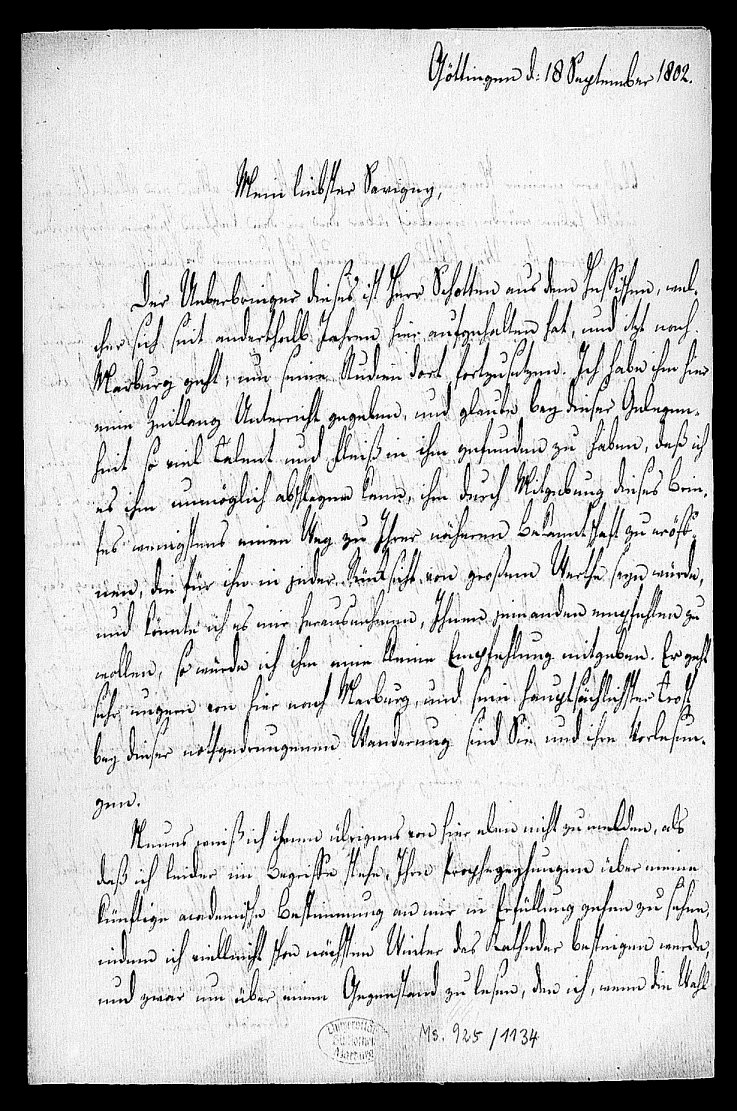 Göttingen d: 18 September 1802.
Mein liebster Savigny,
Der Ueberbringer dieses ist Herr Schotten aus dem Hessischen, wel-
cher sich seit anderthalb Jahren hier aufgehalten hat, und itzt nach
Marburg geht, um seine Studien dort fortzusetzen. Ich habe ihm hier
eine Zeitlang Unterricht gegeben, und glaube bey dieser Gelegen-
heit so viel Talent und Fleiß in ihm gefunden zu haben, daß ich
es ihm unmöglich abschlagen kann, ihm durch Mitgebung dieses Brie-
fes wenigstens einen Weg zu Ihrer näheren Bekanntschaft zu eröff-
nen, die für ihn in jeder Rücksicht von großem Werthe seyn würde,
und könnte ich es mir herausnehmen, Ihnen jemanden empfehlen zu
wollen, so würde ich ihm eine kleine Empfehlung mitgeben. Er geht
sehr ungern von hier nach Marburg, und sein hauptsächlichster Trost
bey dieser nothgedrungenen Wanderung sind Sie und ihre Vorlesun-
gen.
Neues weiß ich ihnen übrigens von hier eben nicht zu melden, als
daß ich leider im Begriffe stehe, Ihre Prophezeyhungen über meine
künftige academische Bestimmung an mir in Erfüllung gehen zu sehen,
indem ich vielleicht schon nächsten Winter das Katheder besteigen werde,
und zwar um über einen Gegenstand zu lesen, den ich, wenn die Wahl
Universitäts-
Bibliothek
Marburg
Ms. 925/1134